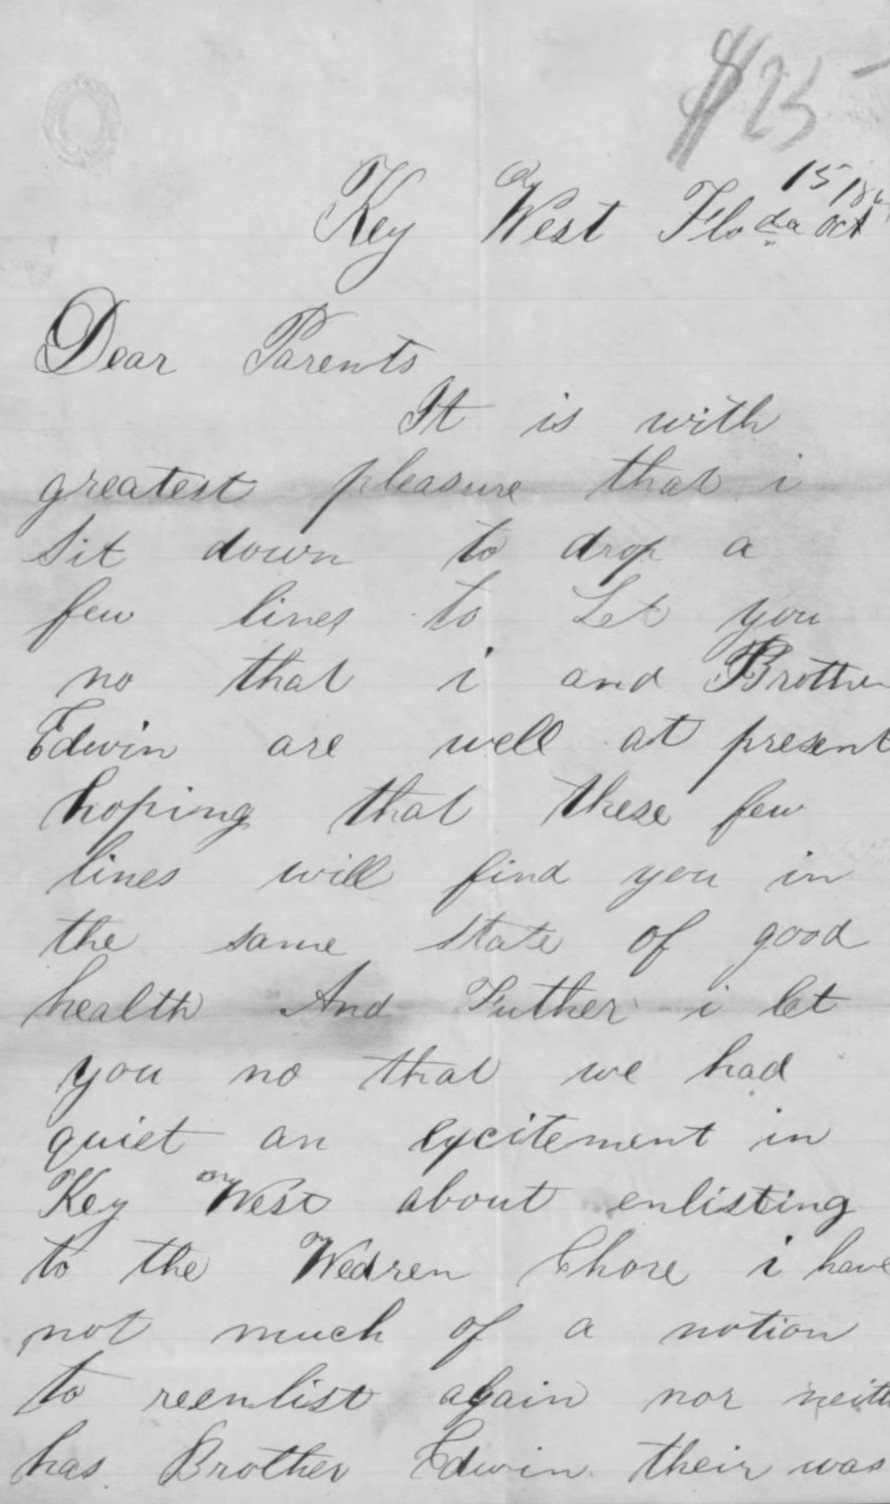 $25
15 18
Key West Flo da Oct
Dear Parents
It is with
greatest pleasure that i
Sit down to drop a
few lines to Let you
no that i and Brother
Edwin are well at present
hoping that these few
lines will find you in
the same state of good
health And Futher i let
you no that we had
quiet an excitement in
Key West about enlisting
to the Wedren Chore i have
not much of a notion
to reenlist again nor neith
has Brother Edwin their was